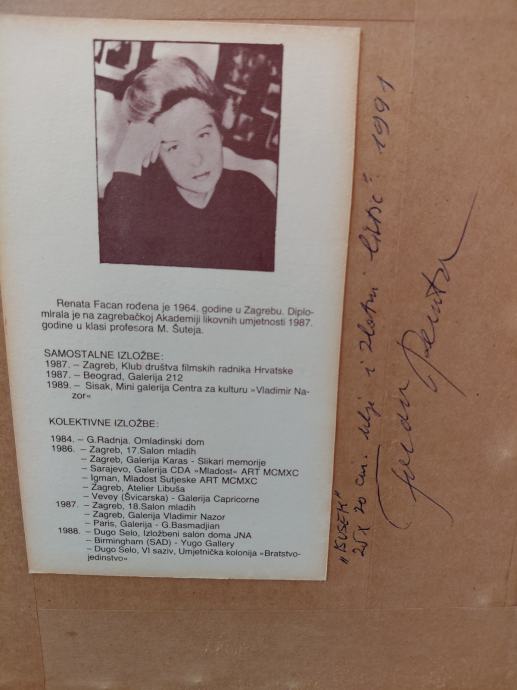 Renata Facan rođena je 1964. godine u Zagrebu. Diplo-
mirala je na zagrebačkoj Akademiji likovnih umjetnosti 1987.
godine u klasi profesora M. Šuteja.
SAMOSTALNE IZLOŽBE:
1987. – Zagreb, Klub društva filmskih radnika Hrvatske
1987. – Beograd, Galerija 212
1989. – Sisak, Mini galerija Centra za kulturu »Vladimir Na-
zor»
KOLEKTIVNE IZLOŽBE:
1984. – G.Radnja, Omladinski dom
1986. – Zagreb, 17.Salon mladih
– Zagreb, Galerija Karas - Slikari memorije
– Sarajevo, Galerija CDA »Mladost» ART MCMXC
– Igman, Mladost Sutjeske ART MCMXC
– Zagreb, Atelier Libuša
– Vevey (Švicarska) - Galerija Capricorne
1987. – Zagreb, 18.Salon mladih
– Zagreb, Galerija Vladimir Nazor
– Paris, Galerija - G.Basmadjian
1988. – Dugo Selo, Izložbeni salon doma JNA
– Birmingham (SAD) - Yugo Gallery
– Dugo Selo, VI saziv, Umjetnička kolonija »Bratstvo-
jedinstvo»
25 x 20 cm. ulje i zlatni listić. 1991
Facan Renata